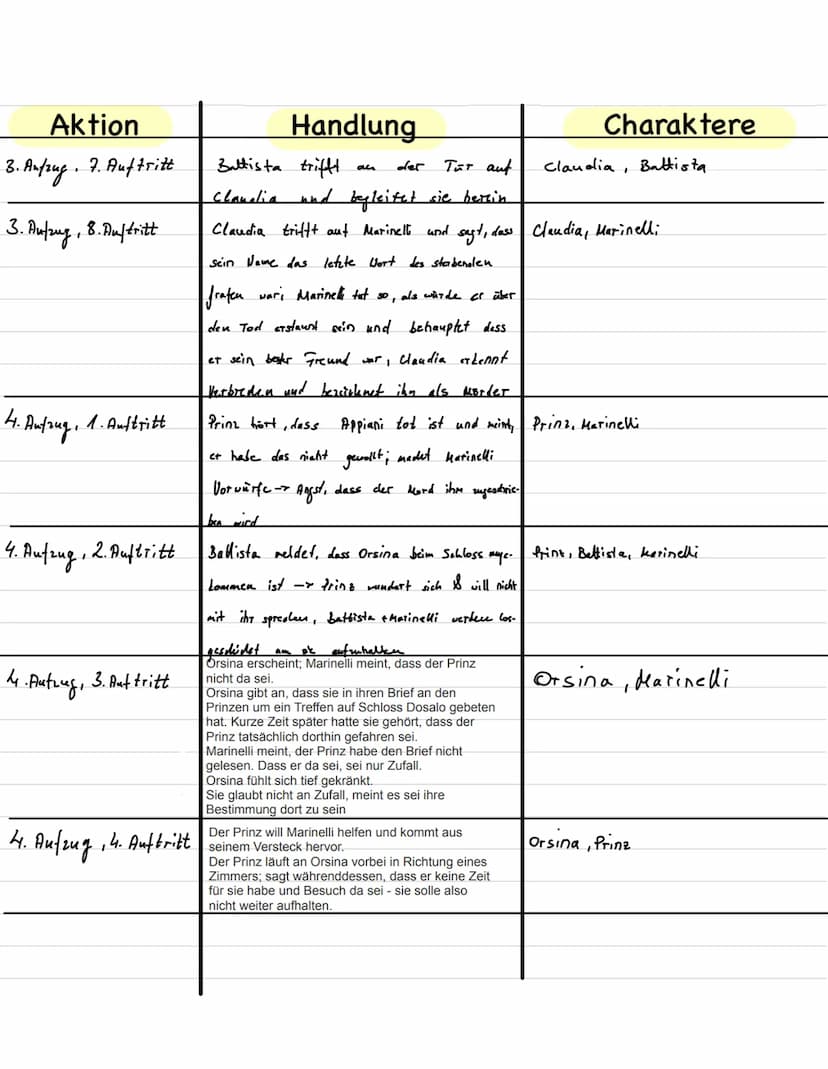 Aktion Handlung Charaktere
3. Aufzug, 7. Auftritt
Battista trifft an der Tür auf
Claudia und begleitet sie herein
Claudia, Battista
3. Aufzug, 8. Auftritt
Claudia trifft auf Marinelli und sagt, dass
sein Name das letzte Wort des sterbenden
Grafen war; Marinelli tut so, als würde er über
den Tod erstaunt sein und behauptet dass
er sein bester Freund war, Claudia erkennt
Verbrechen und bezeichnet ihn als Mörder
Claudia, Marinelli
4. Aufzug, 1. Auftritt
Prinz hört, dass Appiani tot ist und meint,
er habe das nicht gewollt; macht Marinelli
Vorwürfe → Angst, dass der Mord ihm zugeschrie-
ben wird
Prinz, Marinelli
4. Aufzug, 2. Auftritt
Battista meldet, dass Orsina beim Schloss ange-
kommen ist → Prinz wundert sich & will nicht
mit ihr sprechen, Battista + Marinelli werden los-
geschickt um sie aufzuhalten
Prinz, Battista, Marinelli
4. Aufzug, 3. Auftritt
Orsina erscheint; Marinelli meint, dass der Prinz
nicht da sei.
Orsina gibt an, dass sie in ihren Brief an den
Prinzen um ein Treffen auf Schloss Dosalo gebeten
hat. Kurze Zeit später hatte sie gehört, dass der
Prinz tatsächlich dorthin gefahren sei.
Marinelli meint, der Prinz habe den Brief nicht
gelesen. Dass er da sei, sei nur Zufall.
Orsina fühlt sich tief gekränkt.
Sie glaubt nicht an Zufall, meint es sei ihre
Bestimmung dort zu sein
Orsina, Marinelli
4. Aufzug, 4. Auftritt
Der Prinz will Marinelli helfen und kommt aus
seinem Versteck hervor.
Der Prinz läuft an Orsina vorbei in Richtung eines
Zimmers; sagt währenddessen, dass er keine Zeit
für sie habe und Besuch da sei - sie solle also
nicht weiter aufhalten.
Orsina, Prinz